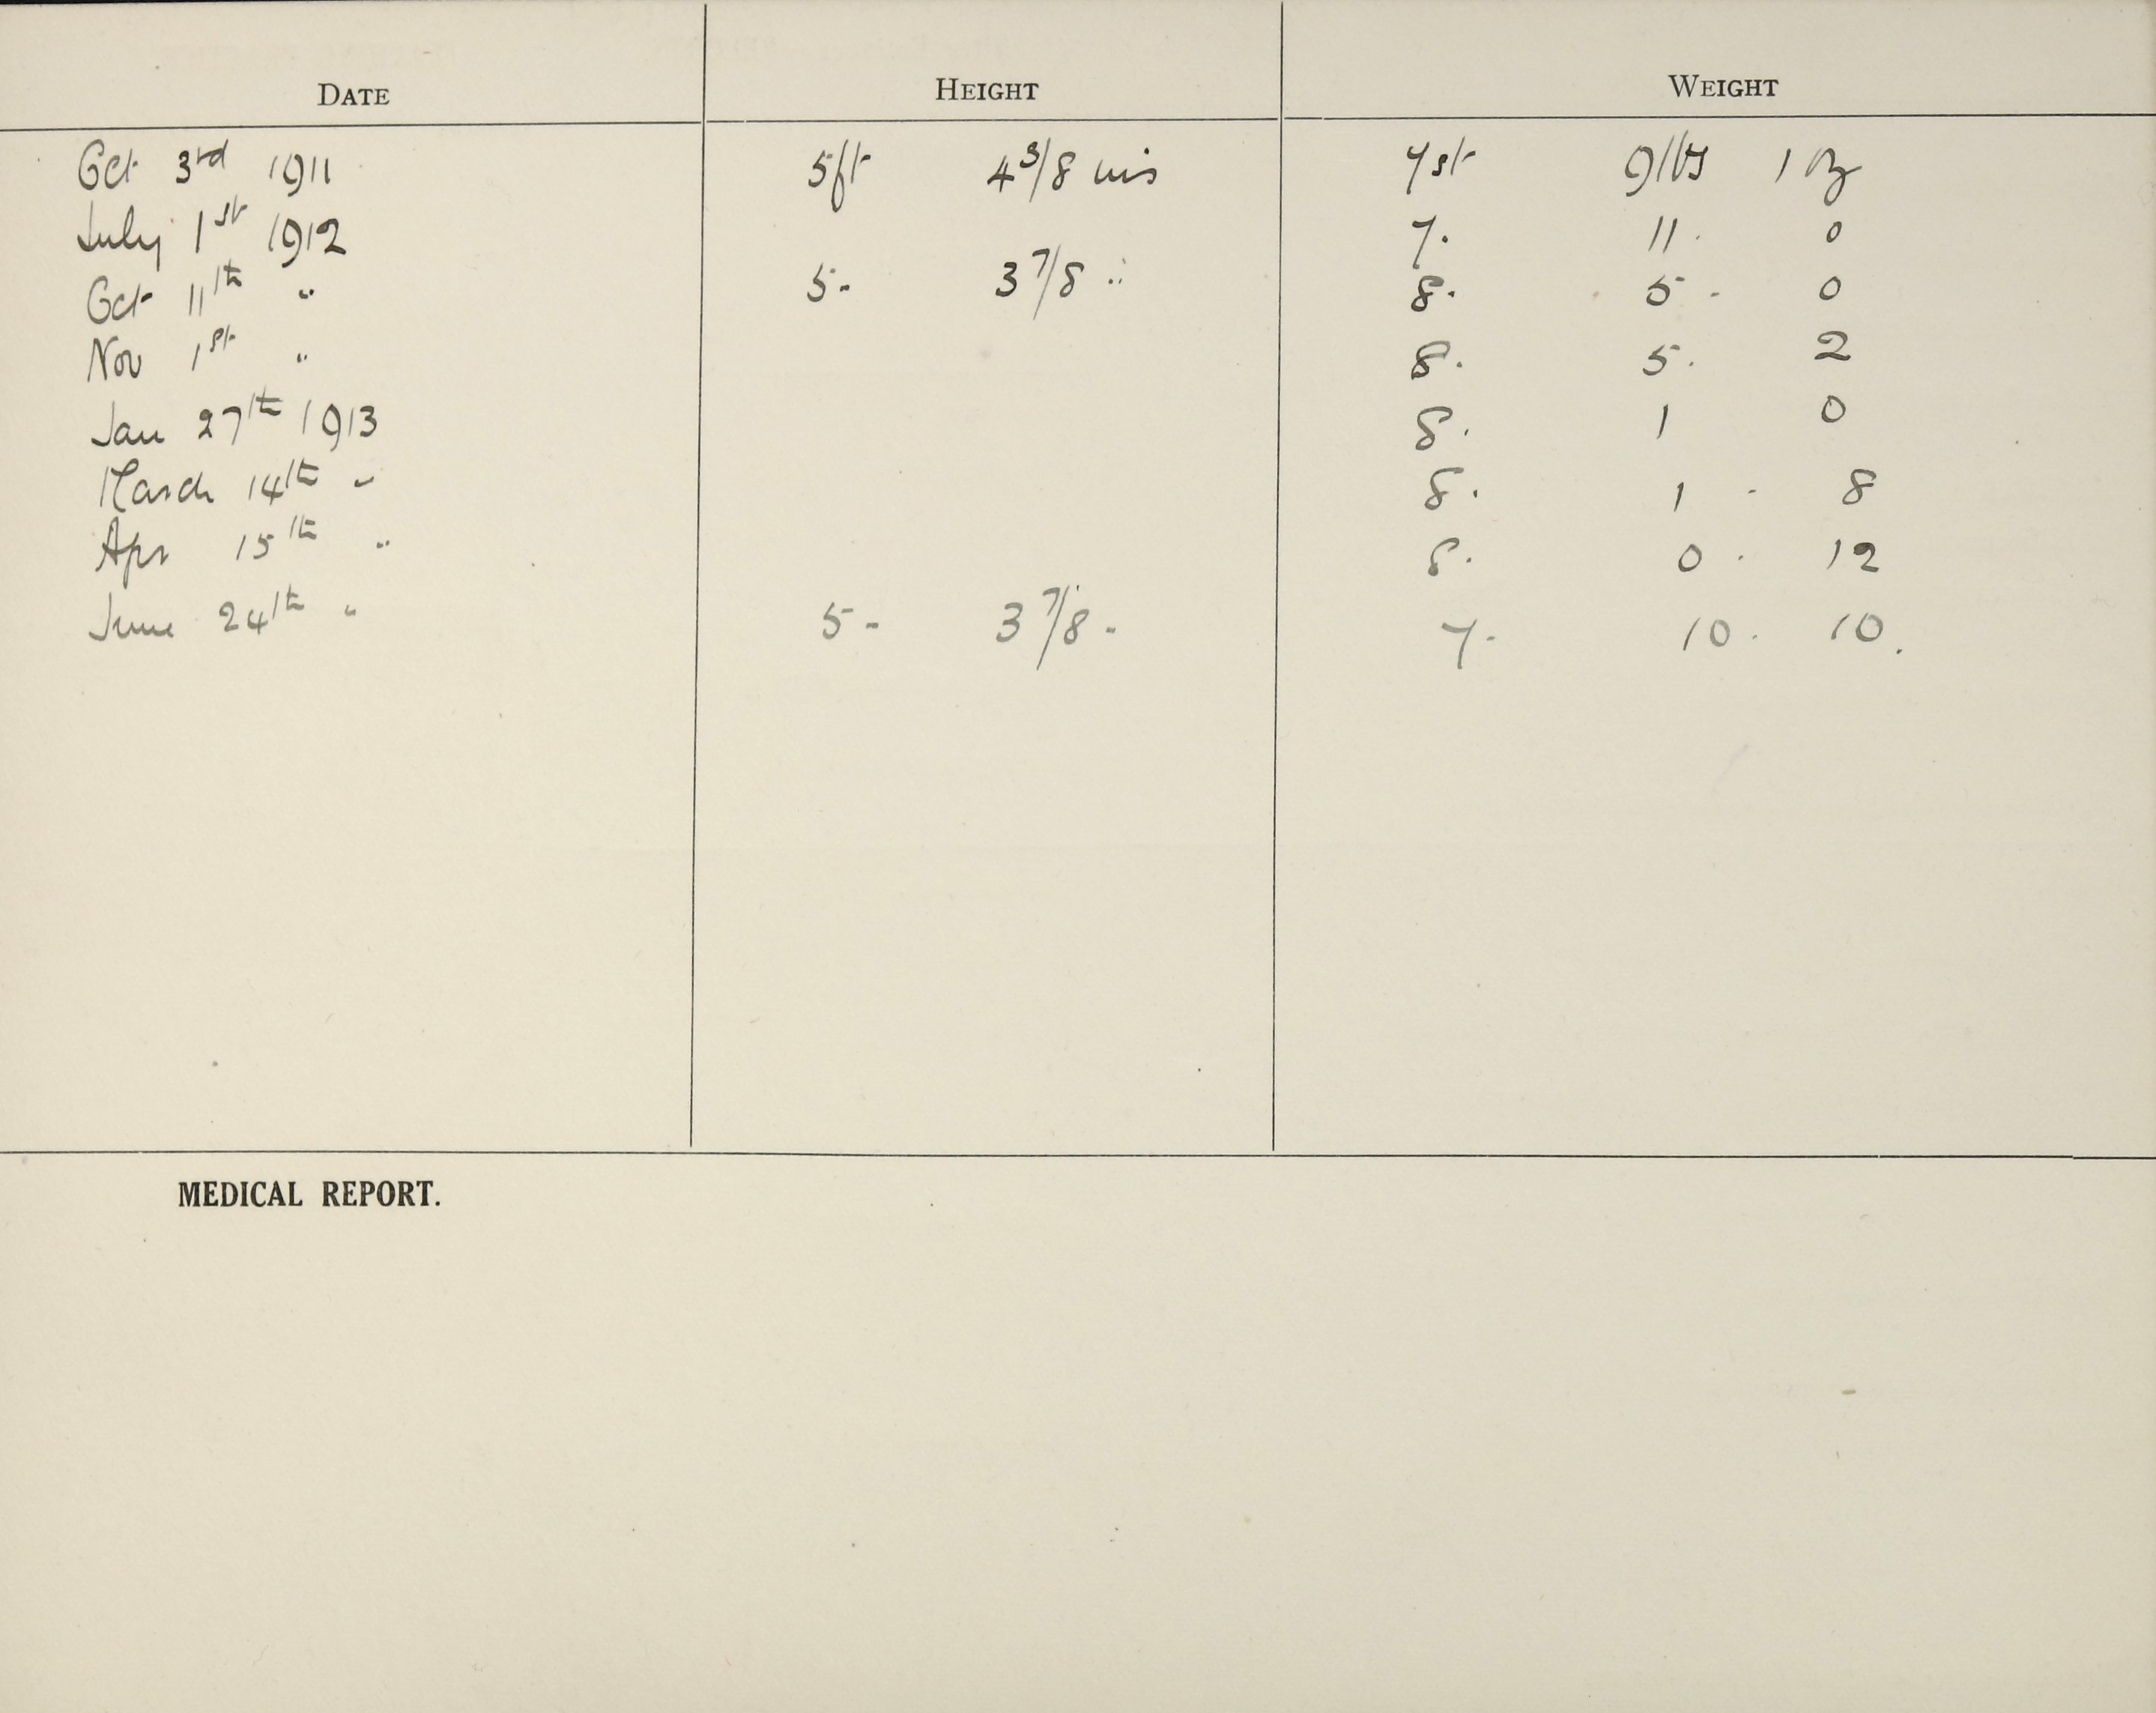 DATE HEIGHT WEIGHT
Oct 3rd 1911 5ft 4 3/8 ins 7st 9lbs 1 oz
July 1st 1912 7. 11. 0
Oct 11th " 5 - 3 7/8 " 8. 5 - 0
Nov 1st " 8. 5. 2
Jan 27th 1913 8. 1 0
March 14th " 8. 1 - 8
Apr 15th " 8. 0. 12
June 24th " 5 - 3 7/8 - 7. 10. 10.
MEDICAL REPORT.